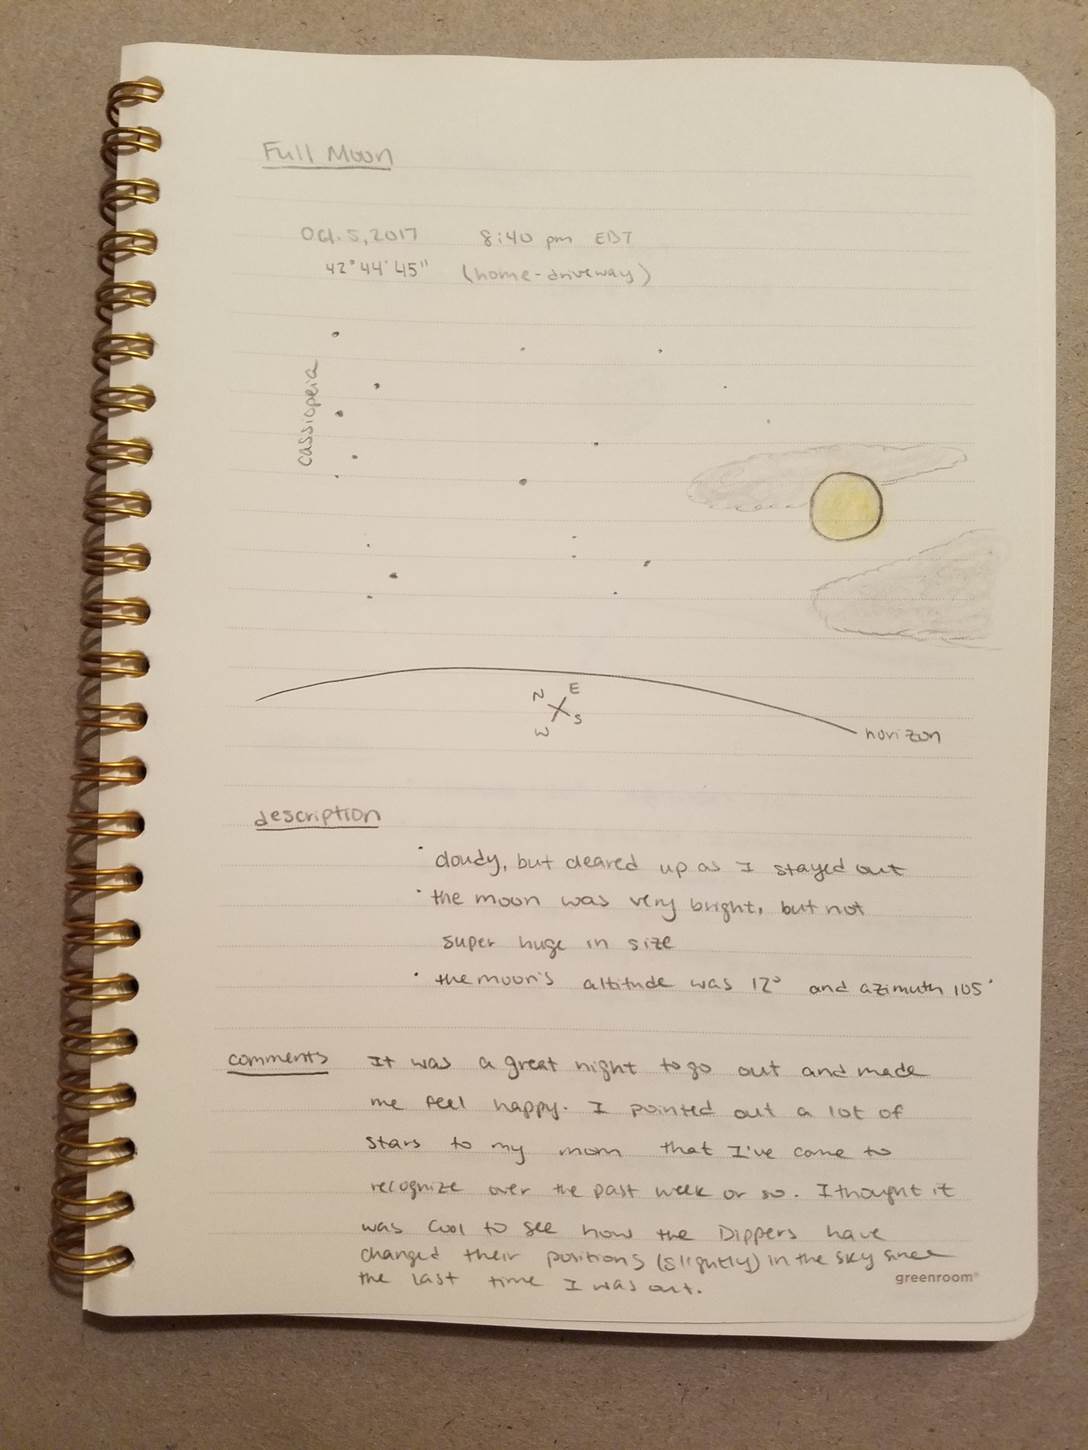 Full Moon
Oct. 5, 2017 8:40 pm EDT
42° 44' 45" (home-driveway)
cassiopeia
N E
W S
horizon
description
· cloudy, but cleared up as I stayed out
· the moon was very bright, but not
super huge in size
· the moon's altitude was 12° and azimuth 105°
comments It was a great night to go out and made
me feel happy. I pointed out a lot of
stars to my mom that I've come to
recognize over the past week or so. I thought it
was cool to see how the Dippers have
changed their positions (slightly) in the sky since
the last time I was out.
greenroom®